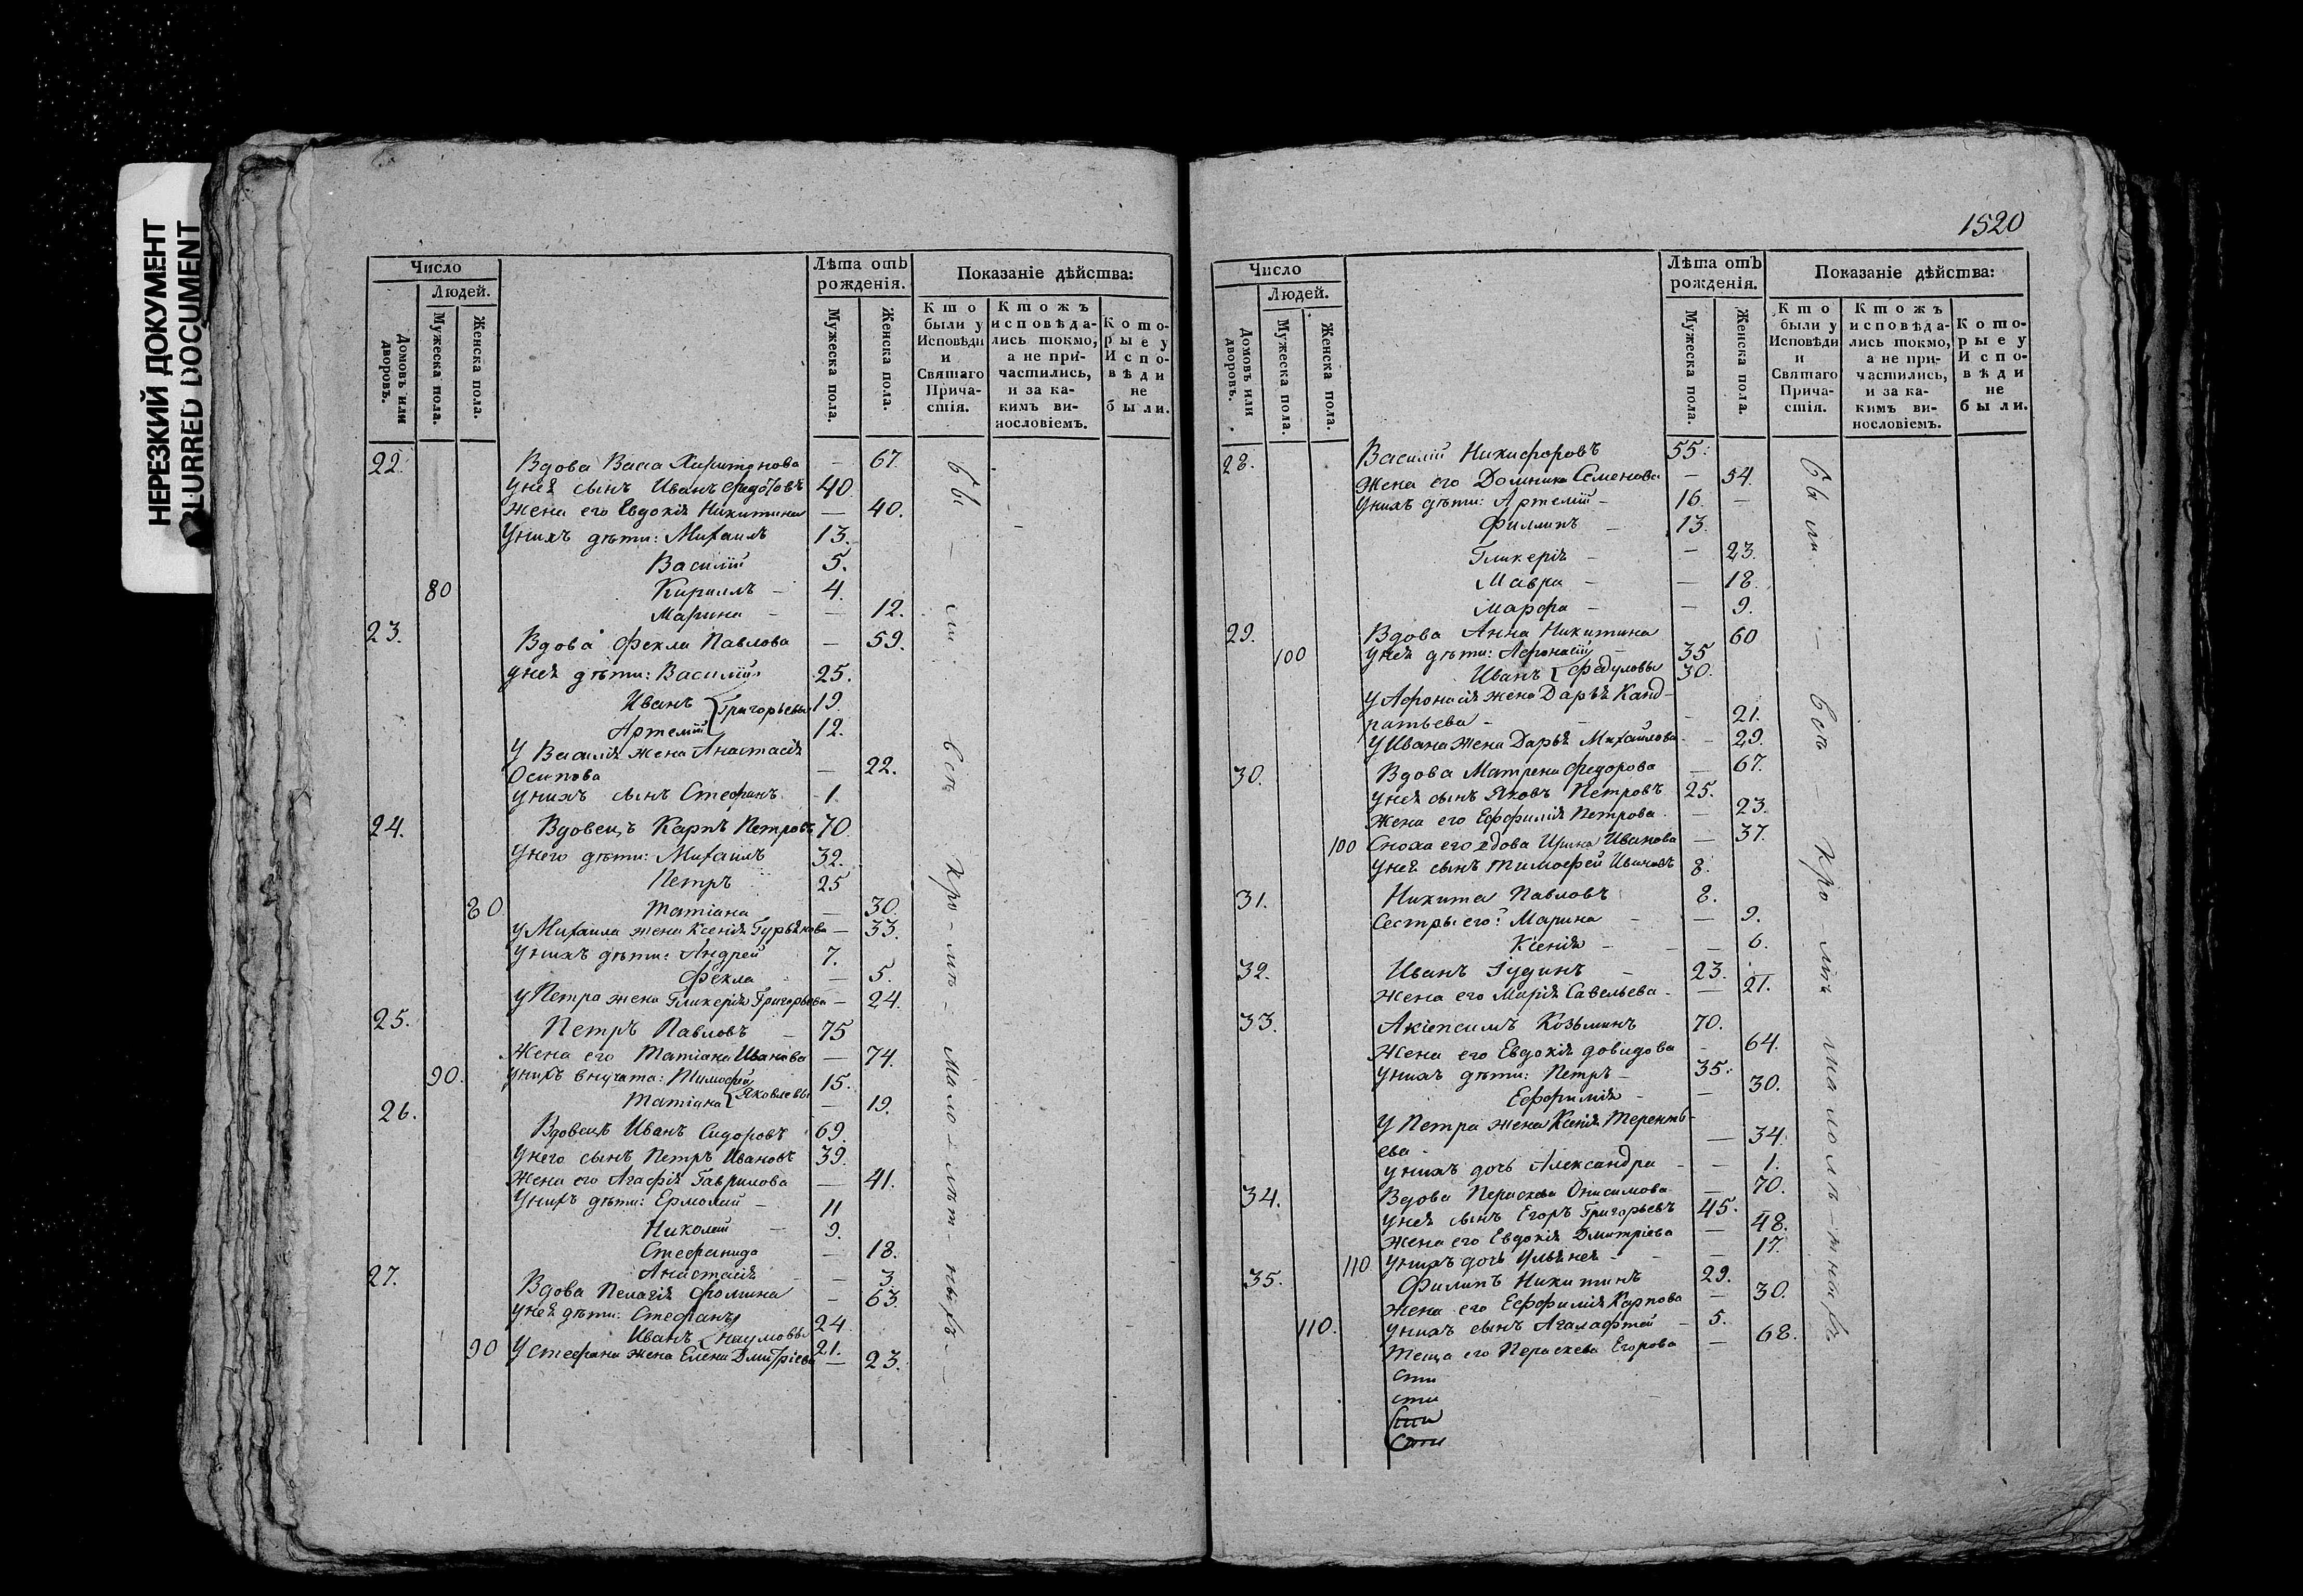 НЕРЕЗКИЙ ДОКУМЕНТ
BLURRED DOCUMENT
Число
Людей.
Домовъ или дворовъ.
Мужеска пола.
Женска пола.
Лѣта отъ рожденія.
Мужеска пола.
Женска пола.
Показаніе дѣйства:
Кто были у Исповѣди и Святаго Причастія.
Ктожъ исповѣдались токмо, а не причастились, и за какимъ винословіемъ.
Которые у Исповѣди не были.
22. Вдова Васса Харитонова — 67.
У нея сынъ Иванъ Федотовъ 40.
Жена его Евдокія Никитина — 40.
У нихъ дѣти: Михаилъ 13.
Василій 5.
80 Кириллъ — 4.
Марина — — 12.
23. Вдова Фекла Павлова — 59.
У нея дѣти: Василій 25.
Иванъ Григорьевы 19.
Артемій 12.
У Василія жена Анастасія
Осипова — 22.
У нихъ сынъ Стефанъ 1.
24. Вдовецъ Карпъ Петровъ 70.
У него дѣти: Михаилъ 32.
Петръ 25
80 Татіана — 30.
У Михаила жена Ксенія Гурьянова — 33.
У нихъ дѣти: Андрей 7.
Фекла — 5.
У Петра жена Гликерія Григорьева — 24.
25. Петръ Павловъ — 75
Жена его Татіана Иванова — 74.
90. У нихъ внучата: Тимофей Яковлевы 15.
Татіана — 19.
26. Вдовецъ Иванъ Сидоровъ 69.
У него сынъ Петръ Ивановъ 39.
Жена его Агафія Гаврилова — 41.
У нихъ дѣти: Ермолай — 11
Николай — 9.
Стефанида — 18.
Анастасія — 3.
27. Вдова Пелагія Фомина — 63.
У нея дѣти: Стефанъ 24
Иванъ Наумовы 21.
90 У Стефана жена Елена Дмитріева — 23.
бы — ли всѣ кро — мѣ — мало — лѣт — ныхъ —
1520
Число
Людей.
Домовъ или дворовъ.
Мужеска пола.
Женска пола.
Лѣта отъ рожденія.
Мужеска пола.
Женска пола.
Показаніе дѣйства:
Кто были у Исповѣди и Святаго Причастія.
Ктожъ исповѣдались токмо, а не причастились, и за какимъ винословіемъ.
Которые у Исповѣди не были.
28. Василій Никифоровъ 55.
Жена его Домника Семенова — 54.
У нихъ дѣти: Артемій — 16. —
Филлипъ — 13.
Гликерія — — 23.
Мавра — — 18.
Марфа — — 9.
29. Вдова Анна Никитина 60
100 У нея дѣти: Афонасій — 35
Иванъ Федуловы 30.
У Афонасія жена Дарья Канд-
ратьева — — 21.
У Ивана жена Дарья Михайлова — 29.
30. Вдова Матрена Федорова — 67.
У нея сынъ Яковъ Петровъ 25.
Жена его Ефимія Петрова — 23.
100 Сноха его вдова Ирина Иванова — 37.
У нея сынъ Тимофей Ивановъ 8.
31. Никита Павловъ 8.
Сестры его: Марина — — 9.
Ксенія — — 6.
32. Иванъ Іудинъ — 23. —
Жена его Марія Савельева — — 21.
33. Козьминъ 70.
Жена его Евдокія Довидова — 64.
У нихъ дѣти: Петръ — 35.
Ефимія — — 30.
У Петра жена Ксенія Теренть-
ева — — 34.
У нихъ дочь Александра — — 1.
34. Вдова Параскева Онисимова — 70.
У нея сынъ Егоръ Григорьевъ 45.
Жена его Евдокія Дмитріева — 48.
110 У нихъ дочь Ульянея — — 17.
35. Филипъ Никитинъ 29.
Жена его Ефимія Карпова — 30.
110. У нихъ сынъ — 5.
Теща его Параскева Егорова — 68.
сти
сти
сти
сти
бы ли — всѣ — кро — мѣ мало лѣ — тныхъ